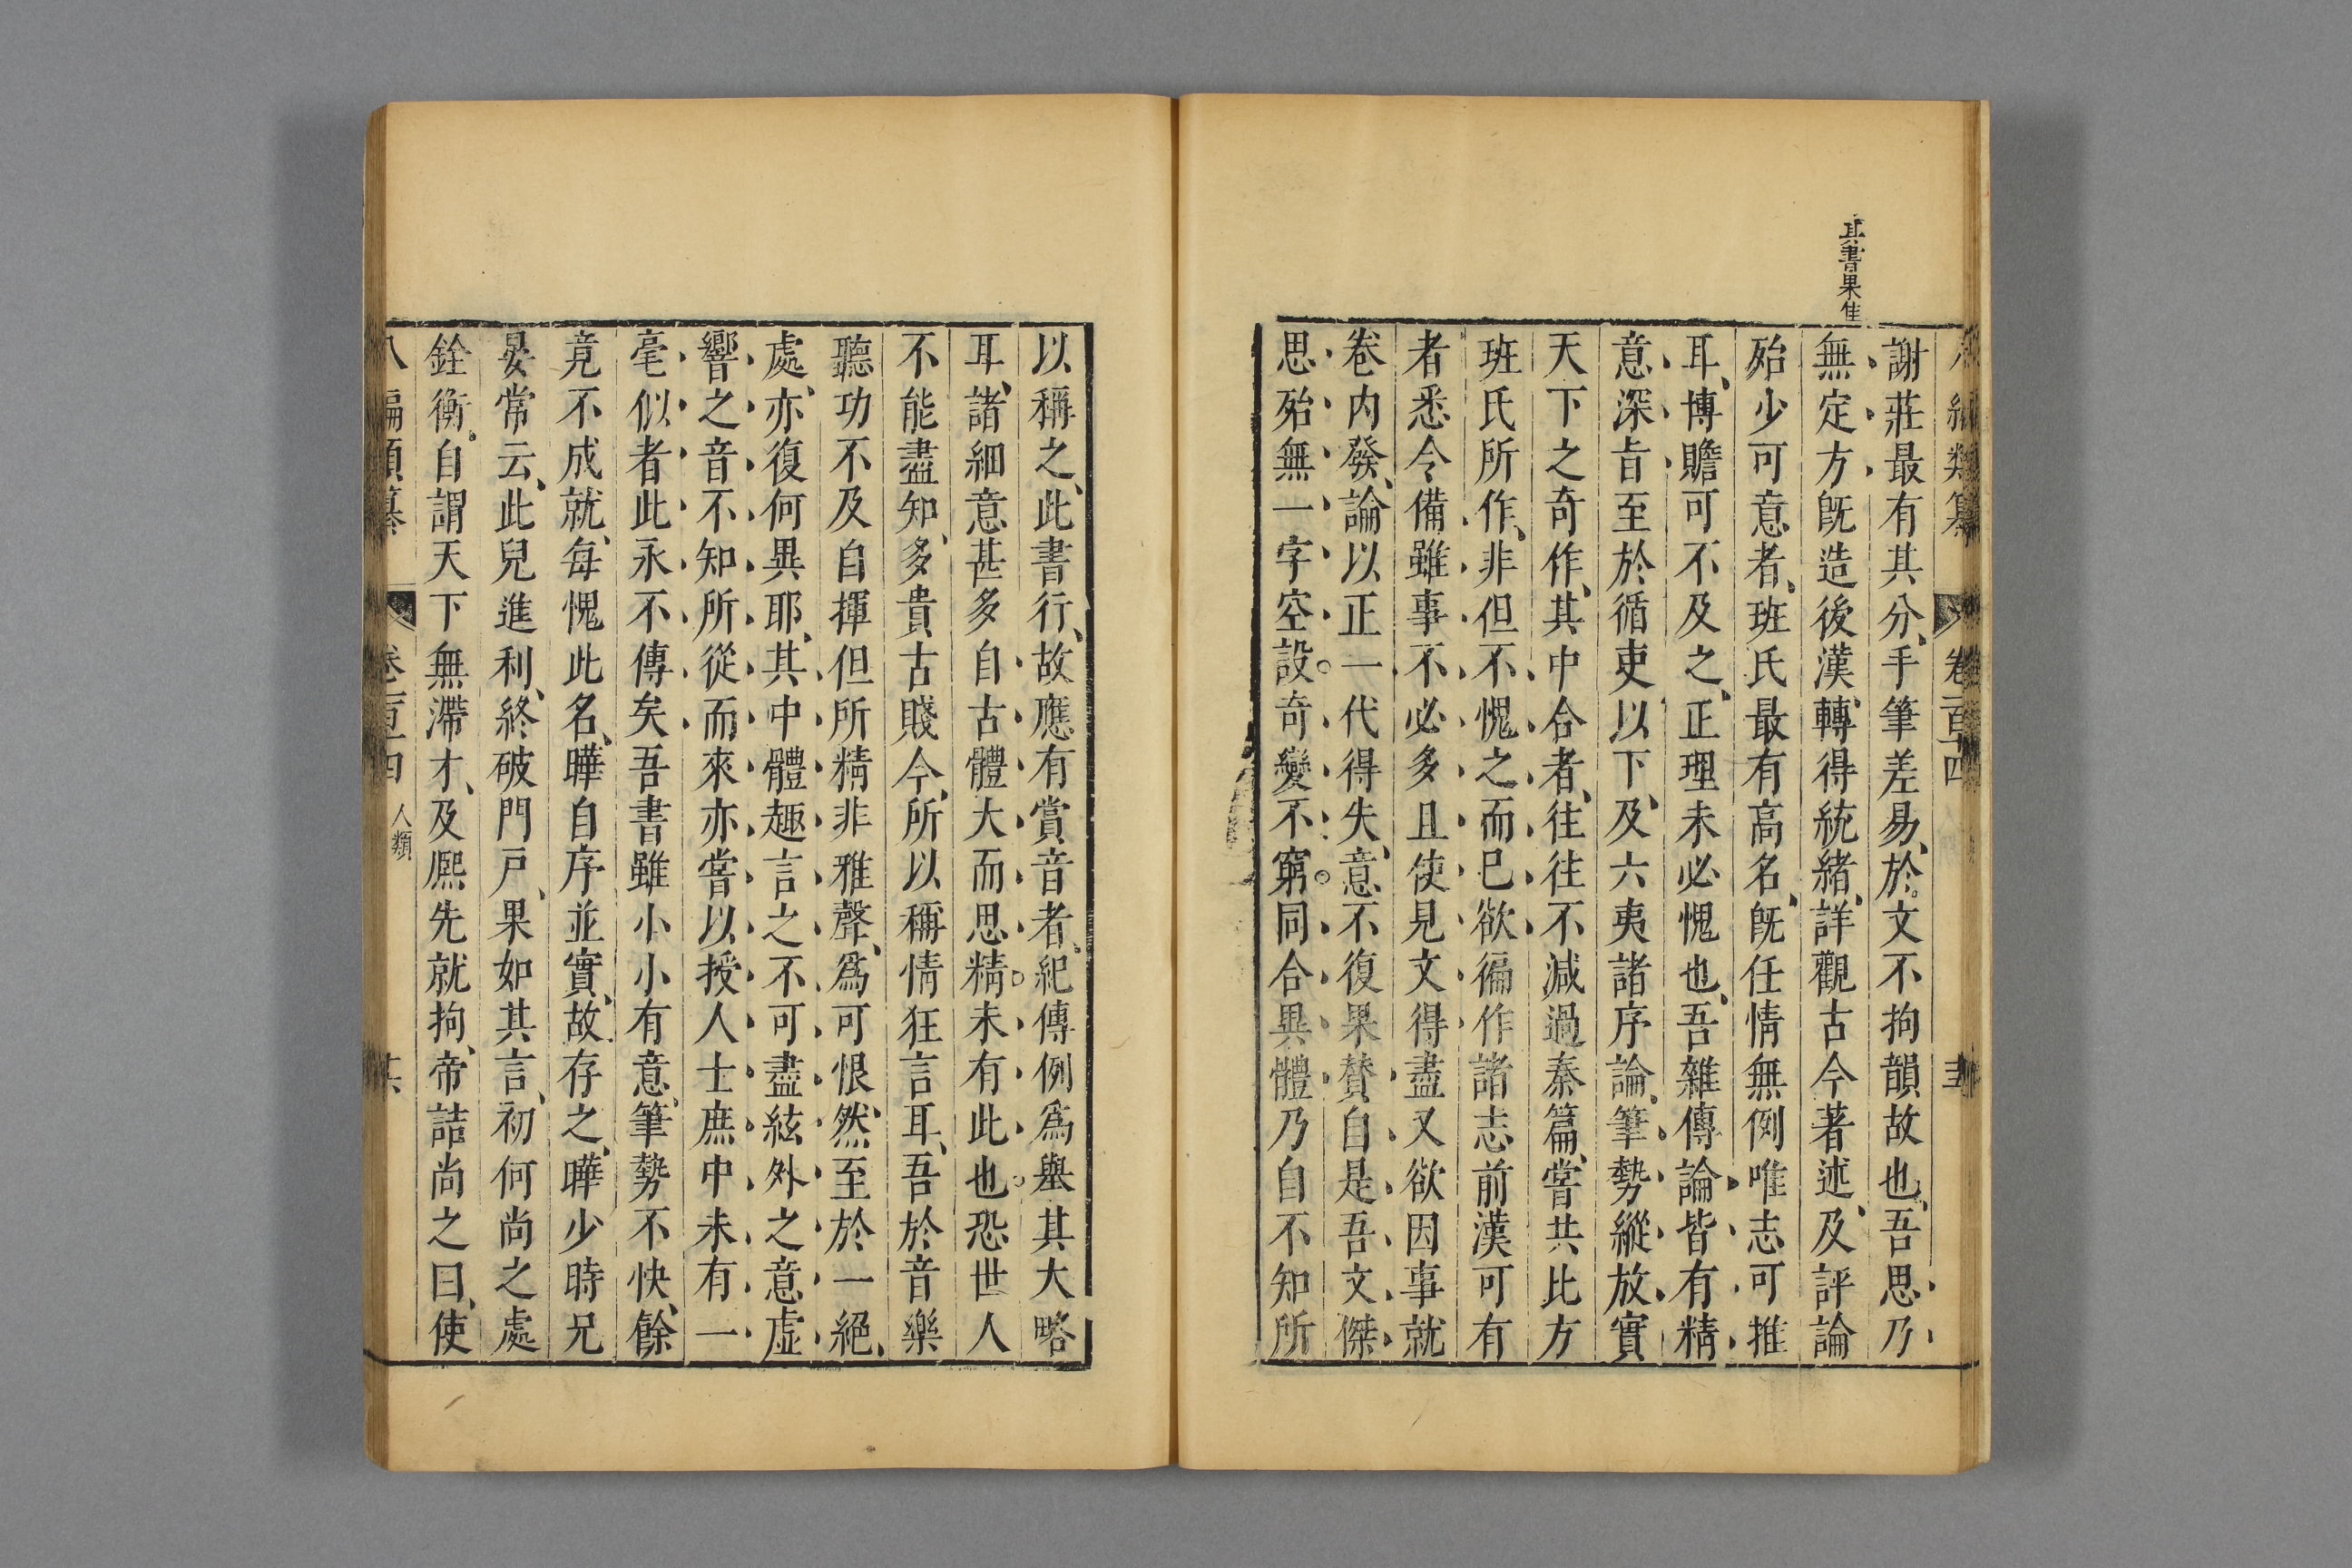 其書果佳
編類纂 卷二百十四
謝莊最有其分手筆差易於文不拘韻故也吾思乃
無定方旣造後漢轉得統緒詳觀古今著述及評論
殆少可意者班氏最有高名旣任情無例唯志可推
耳博贍可不及之正理未必愧也吾雜傳論皆有精
意深旨至於循吏以下及六夷諸序論筆勢縱放實
天下之奇作其中合者往往不減過秦篇嘗共比方
班氏所作非但不愧之而已欲徧作諸志前漢可有
者悉令備雖事不必多且使見文得盡又欲因事就
卷內發論以正一代得失意不復果贊自是吾文傑
思殆無一字空設奇變不窮同合異體乃自不知所
以稱之此書行故應有賞音者紀傳例爲舉其大略
耳諸細意甚多自古體大而思精未有此也恐世人
不能盡知多貴古賤今所以稱情狂言耳吾於音樂
聽功不及自揮但所精非雅聲爲可恨然至於一絕
處亦復何異耶其中體趣言之不可盡絃外之意虛
響之音不知所從而來亦嘗以授人士庶中未有一
毫似者此永不傳矣吾書雖小小有意筆勢不快餘
竟不成就每愧此名曄自序並實故存之曄少時兄
晏常云此兒進利終破門戶果如其言初何尚之處
銓衡自謂天下無滯才及熈先就拘帝詰尚之曰使
八編類纂 卷二百十四 人類